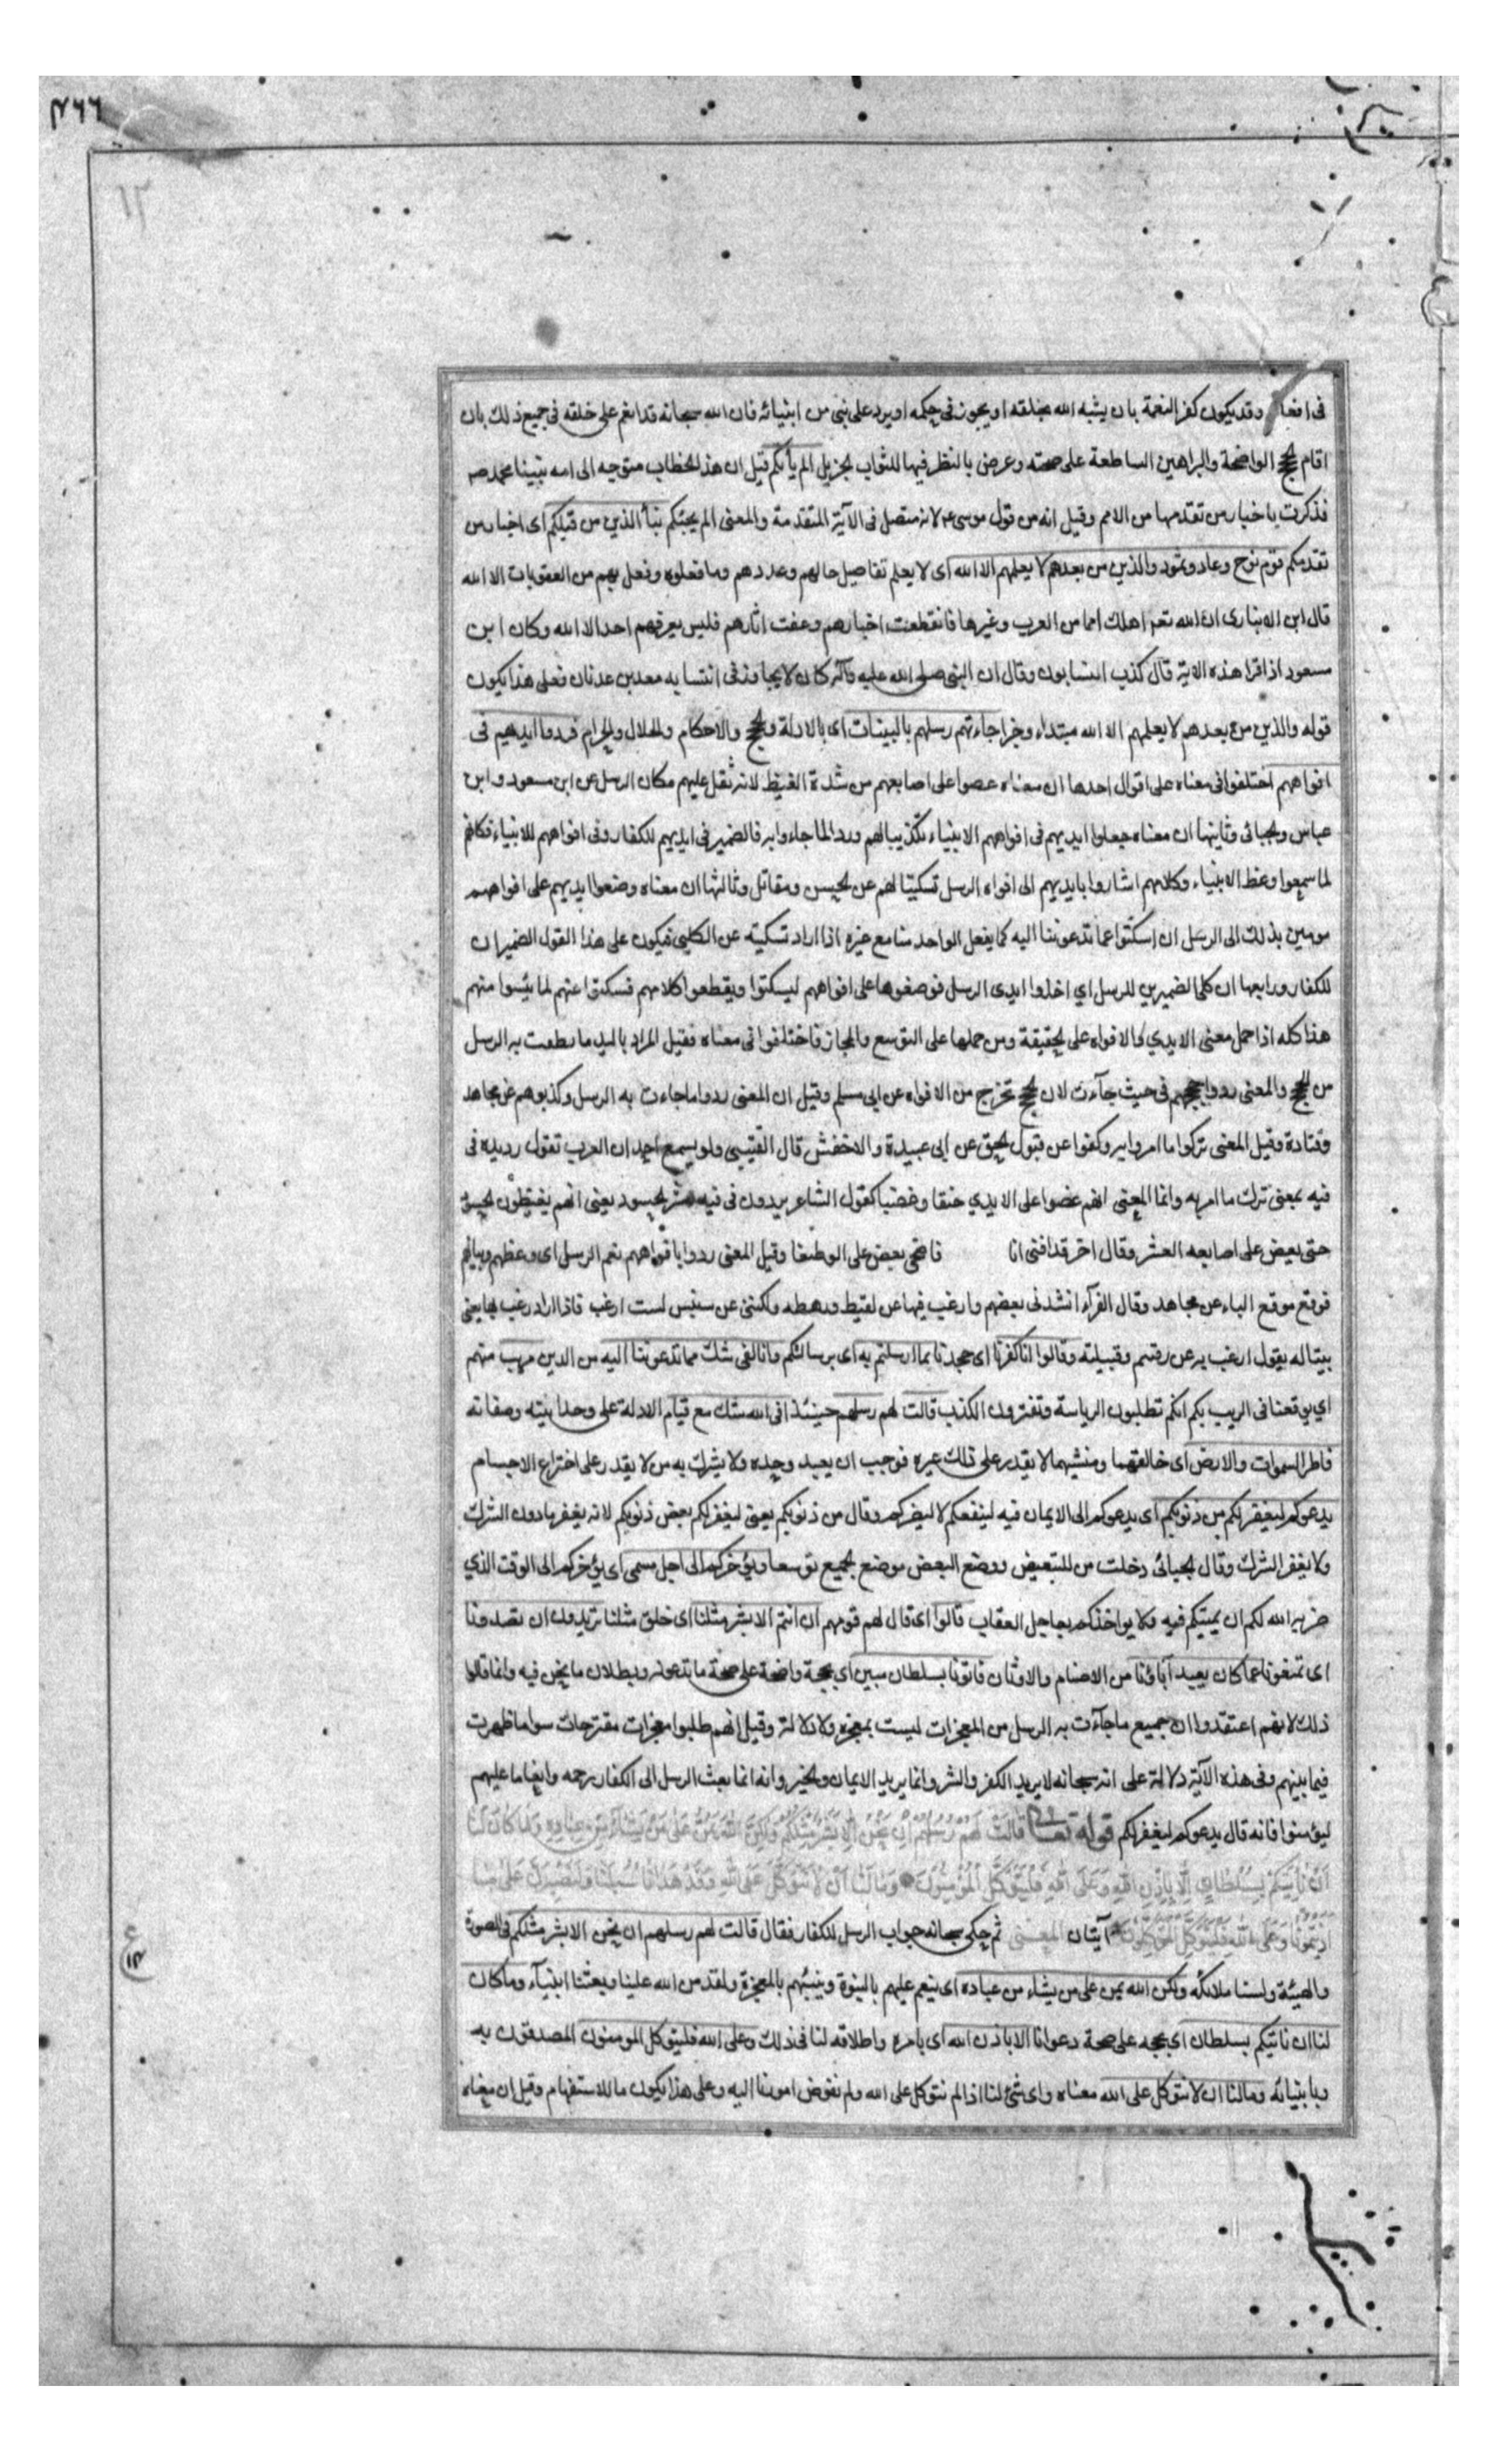 ۴۶۶
فى افعا وقد يكون كفر النعمة بان يشبه الله بخلقه او يجوز فى حكمه او يرد على نبى من انبيائه فان الله سبحانه قد انعم على خلقه فى جميع ذلك بان
اقام الحجج الواضحة والبراهين الساطعة على صحته وعرض بالنظر فيها للثواب الجزيل الم يأتكم قيل ان هذا الخطاب متوجه الى امه نبينا محمد صه
فذكرت باخبار من تقدمها من الامم وقيل انه من قول موسى عم لانه متصل فى الآية المتقدمة والمعنى الم يجئكم نبأ الذين من قبلكم اى اخبار من
تقدمكم قوم نوح وعاد وثمود والذين من بعدهم لا يعلمهم الا الله اى لا يعلم تفاصيل حالهم وعددهم وما فعلوه وفعل بهم من العقوبات الا الله
قال ابن الانبارى ان الله تعم اهلك امما من العرب وغيرها فانقطعت اخبارهم وعفت اثارهم فليس يعرفهم احد الا الله وكان ابن
مسعود اذا قرا هذه الاية قال كذب النسابون وقال ان النبى صلى الله عليه وآله كان لا يجاوز فى انتسابه معد بن عدنان فعلى هذا يكون
قوله والذين من بعدهم لا يعلمهم الا الله مبتداء وخبرا جاءتهم رسلهم بالبينات اى بالادلة والحجج والاحكام والحلال والحرام فردوا ايديهم فى
افواههم اختلفوا فى معناه على اقوال احدها ان معناه عضوا على اصابعهم من شدة الغيظ لانه ثقل عليهم مكان الرسل عن ابن مسعود وابن
عباس والجبائى وثانيها ان معناه جعلوا ايديهم فى افواههم الانبياء تكذيبا لهم وردا لما جاءوا به فالضمير فى ايديهم للكفار وفى افواههم للانبياء فكانهم
لما سمعوا وعظ الانبياء وكلامهم اشاروا بايديهم الى افواه الرسل تسكيتا لهم عن الحسن ومقاتل وثالثها ان معناه وضعوا ايديهم على افواههم
مومين بذلك الى الرسل ان اسكتوا عما تدعوننا اليه كما يفعل الواحد منا مع غيره اذا اراد تسكيته عن الكلبى فيكون على هذا القول الضميران
للكفار ورابعها ان كلى الضميرين للرسل اي اخذوا ايدى الرسل فوضعوها على افواههم ليسكتوا ويقطعوا كلامهم فسكتوا عنهم لما يئسوا منهم
هذا كله اذا حمل معنى الايدي والافواه على الحقيقة ومن حملها على التوسع والمجاز فاختلفوا فى معناه فقيل المراد باليد ما نطقت به الرسل
من الحجج والمعنى ردوا حججهم فى حيث جآءت لان الحجج تخرج من الافواه عن ابى مسلم وقيل ان المعنى ردوا ما جاءت به الرسل وكذبوهم عن مجاهد
وقتادة وقيل المعنى تركوا ما امروا به وكفوا عن قبول الحق عن ابى عبيدة والاخفش قال القتيبى ولو يسمع احد ان العرب تقول رد يده فى
فيه بمعنى ترك ما امر به وانما المعنى انهم عضوا على الايدي حنقا وغضبا كقول الشاعر يردون فى فيه عشر الحسود يعنى انهم يغيظون الحسود
حتى يعض على اصابعه العشر وقال اخر قد افنى انا فاضحى بعض على الوظيفا وقيل المعنى ردوا بافواههم نعم الرسل اى وعظهم وبيانهم
فوقع موقع الباء عن مجاهد وقال الفرآء انشدنى بعضهم وارغب فيها عن لقيط ورهطه ولكننى عن سنبس لست ارغب قال اراد ارغب بها يعنى
بيتا له يقول ارغب به عن وقبيلته وقالوا انا كفرنا اى جحدنا بما ارسلتم به اى برسالتكم وانا لفى شك مما تدعوننا اليه من الدين مريب متهم
اي يوقعنا فى الريب بكم انكم تطلبون الرياسة وتفترون الكذب قالت لهم رسلهم حينئذ افى الله شك مع قيام الادلة على وحدانيته وصفاته
فاطر السموات والارض اى خالقهما ومنشيهما لا يقدر على ذلك غيره فوجب ان يعبد وحده ولا يشرك به من لا يقدر على اختراع الاجسام
يدعوكم ليغفر لكم من ذنوبكم اى يدعوكم الى الايمان فيه لينفعكم لا ليضركم وقال من ذنوبكم يعنى ليغفر لكم بعض ذنوبكم لانه يغفر ما دون الشرك
ولا يغفر الشرك وقال الجبائى دخلت من للتبعيض ووضع البعض موضع الجميع توسعا ويؤخركم الى اجل مسمى اى يؤخركم الى الوقت الذي
ضربه الله لكم ان يميتكم فيه ولا يواخذكم بعاجل العقاب قالوا اى قال لهم قومهم ان انتم الا بشر مثلنا اى خلق مثلنا تريدون ان تصدونا
اى تمنعونا عما كان يعبد آباؤنا من الاصنام والاوثان فاتونا بسلطان مبين اي بحجة واضحة على صحة ما تدعونه وبطلان ما نحن فيه وانما قالوا
ذلك لانهم اعتقدوا ان جميع ما جآءت به الرسل من المعجزات ليست بمعجزه ولا دلالة وقيل انهم طلبوا معجزات مقترحات سوا ما ظهرت
فيما بينهم وفى هذه الآية دلالة على انه سبحانه لا يريد الكفر والشر وانما يريد الايمان والخير وانه انما بعث الرسل الى الكفار رحمه وانعاما عليهم
ليؤمنوا فانه قال يدعوكم ليغفر لكم قوله تعا قَالَتْ لَهُمْ رُسُلُهُمْ اِنْ نَحْنُ اِلَّا بَشَرٌ مِثْلُكُمْ وَلٰكِنَّ اللّٰهَ يَمُنُّ عَلٰى مَنْ يَشَاءُ مِنْ عِبَادِهِ وَمَا كَانَ لَنَا
اَنْ نَأْتِيَكُمْ بِسُلْطَانٍ اِلَّا بِاِذْنِ اللّٰهِ وَعَلَى اللّٰهِ فَلْيَتَوَكَّلِ الْمُؤْمِنُونَ وَمَا لَنَا اَنْ لَا نَتَوَكَّلَ عَلَى اللّٰهِ وَقَدْ هَدٰانَا سُبُلَنَا وَلَنَصْبِرَنَّ عَلٰى مَا
اٰذَيْتُمُونَا وَعَلَى اللّٰهِ فَلْيَتَوَكَّلِ الْمُتَوَكِّلُونَ آيتان المعنى ثم حكى سبحانه جواب الرسل للكفار فقال قالت لهم رسلهم ان نحن الا بشر مثلكم فى الصورة
والهيئة ولسنا ملائكه ولكن الله يمن على من يشاء من عباده اى ينعم عليهم بالنبوة وينبئهم بالمعجزة ولقد من الله علينا وبعثنا انبيآء وما كان
لنا ان ناتيكم بسلطان اي بحجه على صحة دعوانا الا باذن الله اى بامره واطلاقه لنا فى ذلك وعلى الله فليتوكل المومنون المصدقون به
وبانبيائه وما لنا ان لا نتوكل على الله معناه واى شئ لنا اذا لم نتوكل على الله ولم نفوض امورنا اليه وعلى هذا يكون ما للاستفهام وقيل ان معناه